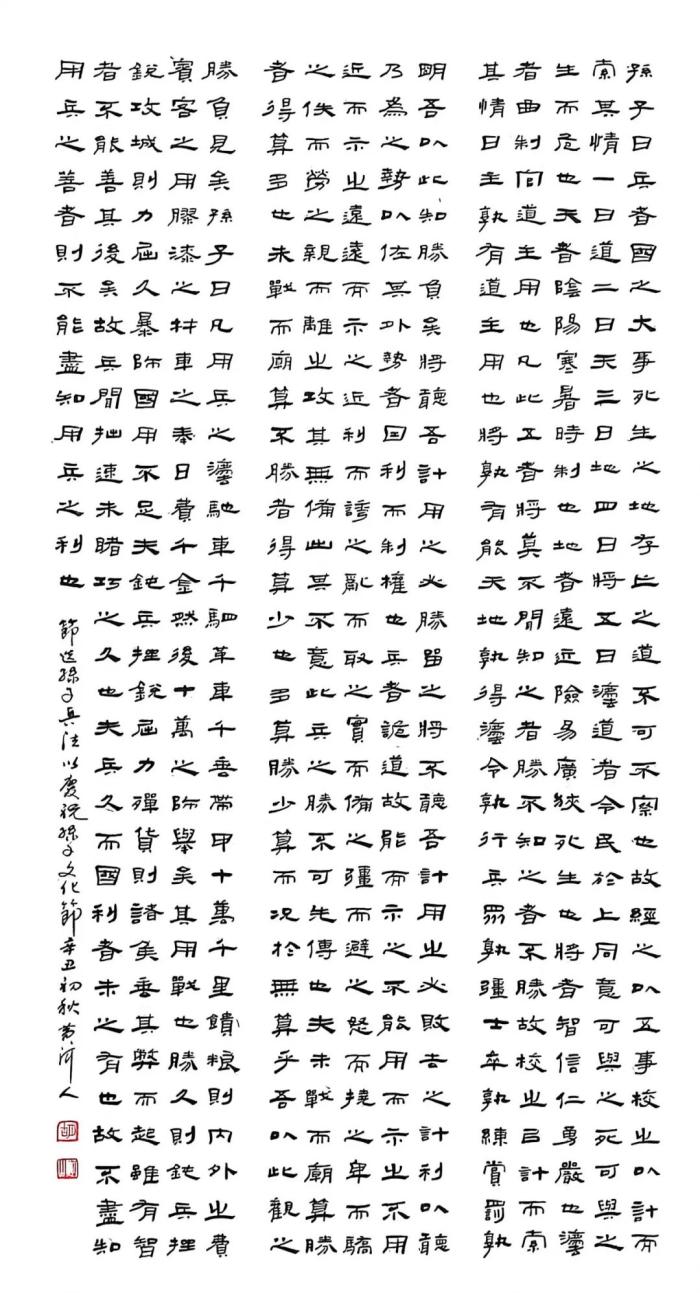 孫子曰兵者國之大事死生之地存亡之道不可不察也故經之以五事校之以計而
索其情一曰道二曰天三曰地四曰將五曰灋道者令民於上同意可與之死可與之
生而危也天者陰陽寒暑時制也地者遠近險易廣狹死生也將者智信仁勇嚴也灋
者曲制官道主用也凡此五者將莫不聞知之者勝不知之者不勝故校之以計而索
其情曰主孰有道主用也將孰有能天地孰得灋令孰行兵眾孰彊士卒孰練賞罰孰
明吾以此知勝負矣將聽吾計用之必勝留之將不聽吾計用之必敗去之計利以聽
乃為之勢以佐其外勢者因利而制權也兵者詭道故能而示之不能用而示之不用
近而示之遠遠而示之近利而誘之亂而取之實而備之彊而避之怒而撓之卑而驕
之佚而勞之親而離之攻其無備出其不意此兵之勝不可先傳也夫未戰而廟算勝
者得算多也未戰而廟算不勝者得算少也多算勝少算而況於無算乎吾以此觀之
勝負見矣孫子曰凡用兵之灋馳車千駟革車千乘帶甲十萬千里饋糧則內外之費
賓客之用膠漆之材車之奉日費千金然後十萬之師舉矣其用戰也勝久則鈍兵挫
銳攻城則力屈久暴師國用不足夫鈍兵挫銳屈力殫貨則諸侯乘其弊而起雖有智
者不能善其後矣故兵聞拙速未睹巧之久也夫兵久而國利者未之有也故不盡知
用兵之善者則不能盡知用兵之利也
節選孫子兵法以慶祝孫子文化節辛丑初秋黃濟人